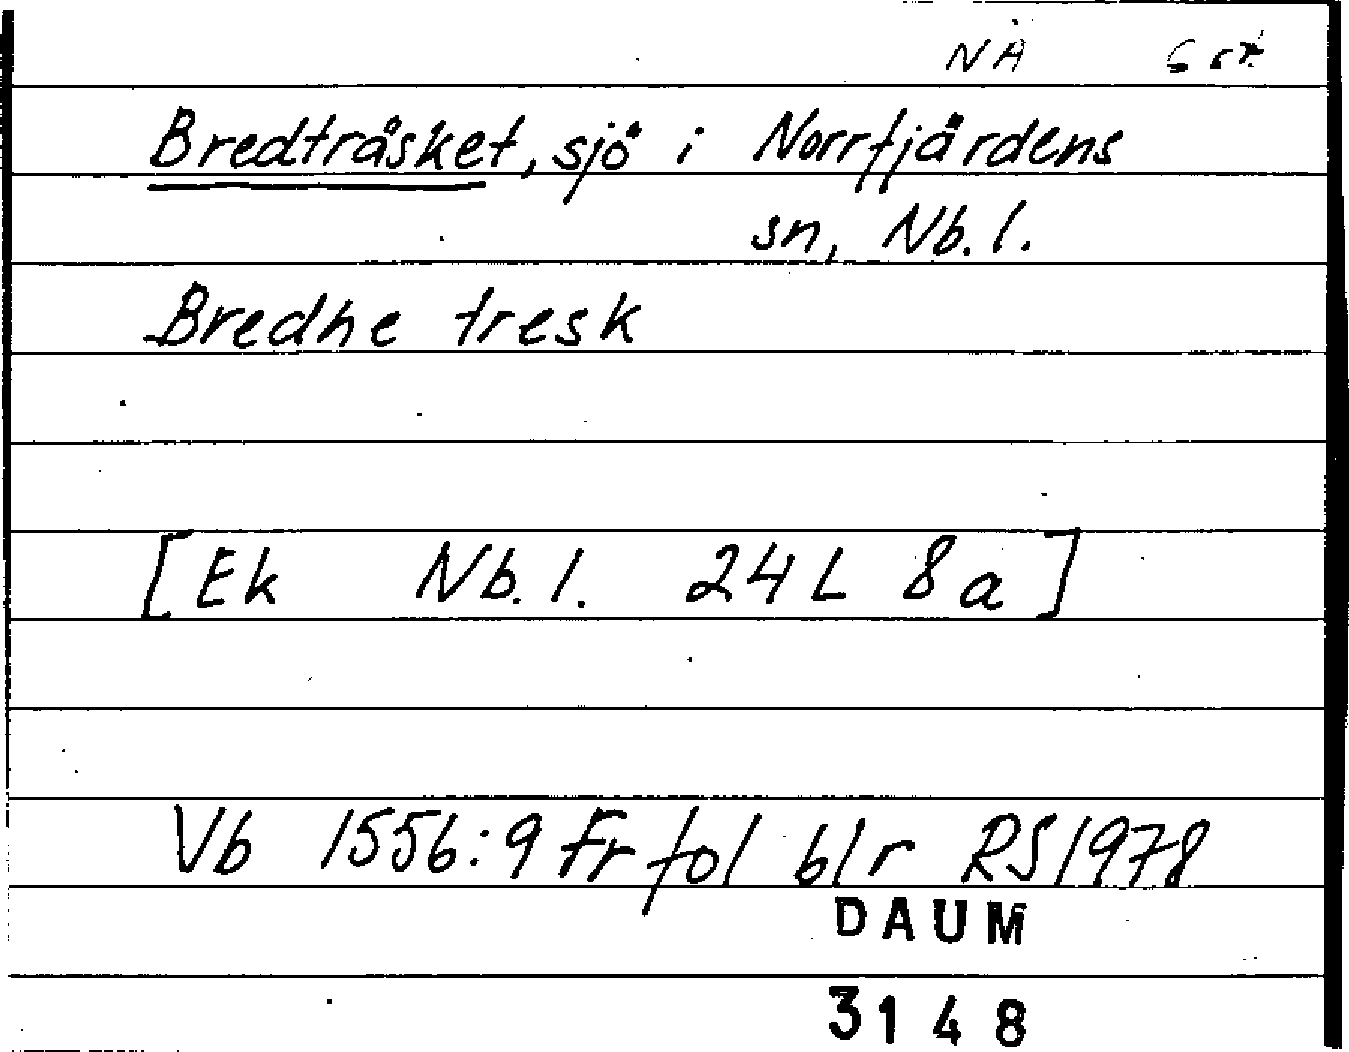 NÅ
Bredträsket, sjö i Norrfjärdens
sn, Nb.l.
Bredhe tresk
[Ek Nb.l. 24L 8a]
Vb 1556:9 Fr fol blr RS 1978
DAUM
3148